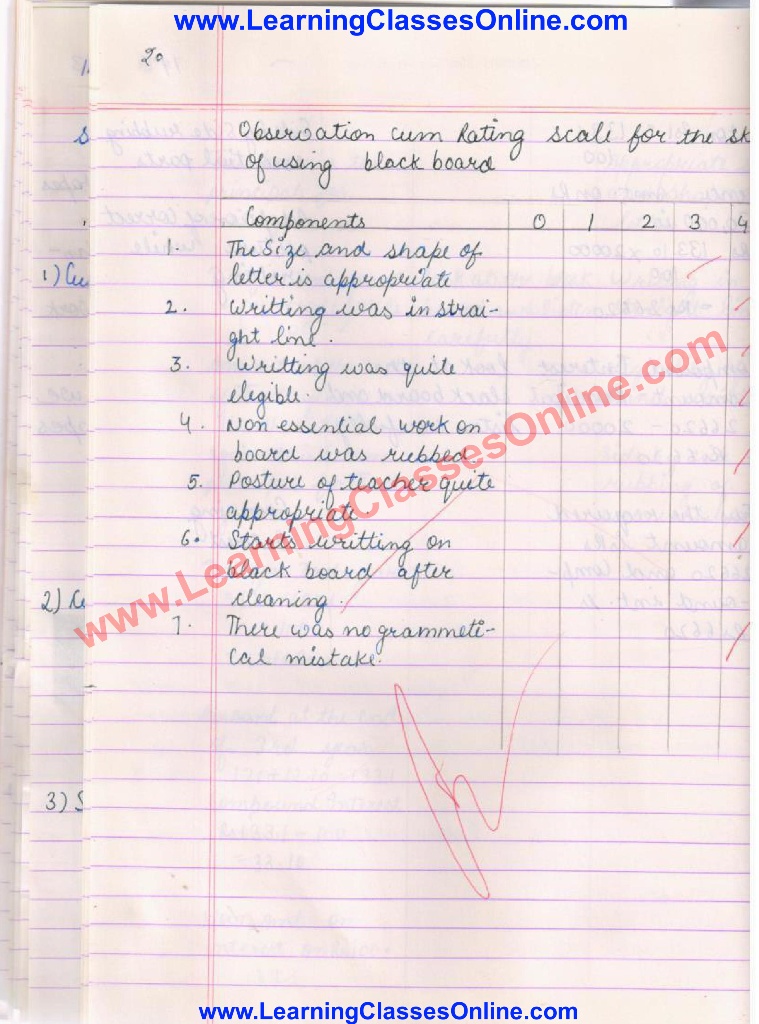 www.LearningClassesOnline.com
20
Observation cum Rating scale for the sk
of using black board
Components 0 1 2 3 4
1. The Size and shape of
letter is appropriate
2. Writting was in strai-
ght line.
3. Writting was quite
elegible.
4. Non essential work on
board was rubbed
5. Posture of teacher quite
appropriate.
6. Starts writting on
black board after
cleaning.
7. There was no grammeti-
cal mistake.
1) Cu
2)
3) S
www.LearningClassesOnline.com
www.LearningClassesOnline.com